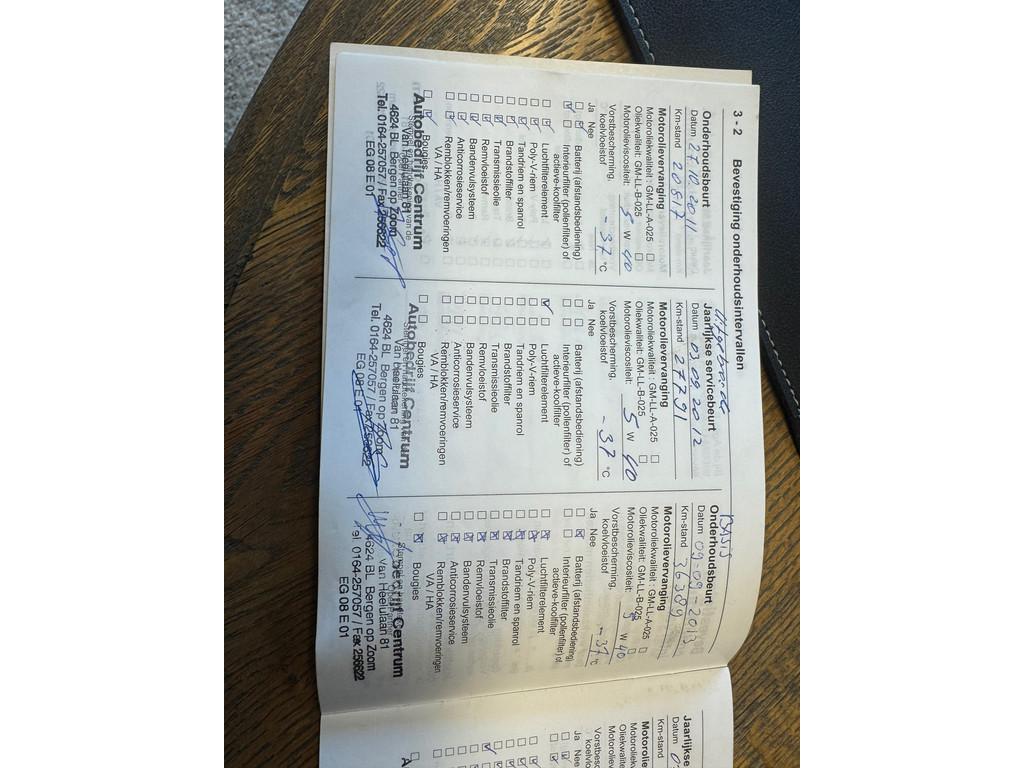 3 - 2 Bevestiging onderhoudsintervallen
Onderhoudsbeurt
Datum 27.10.2011
Km-stand 20517
Motorolievervanging
Motoroliekwaliteit : GM-LL-A-025 ☐
Oliekwaliteit: GM-LL-B-025 ☐
Motorolieviscositeit: 5 W 40
Vorstbescherming,
koelvloeistof -37 °C
Ja Nee
Batterij (afstandsbediening)
Interieurfilter (pollenfilter) of
actieve-koolfilter
Luchtfilterelement
Poly-V-riem
Tandriem en spanrol
Brandstoffilter
Transmissieolie
Remvloeistof
Bandenvulsysteem
Anticorrosieservice
Remblokken/remvoeringen
VA / HA
Bougies
Autobedrijf Centrum
Van Heelulaan 81
4624 BL Bergen op Zoom
Tel. 0164-257057 / Fax 256622
EG 08 E 01
Uitgebreide
Jaarlijkse servicebeurt
Datum 03.09.2012
Km-stand 27791
Motorolievervanging
Motoroliekwaliteit : GM-LL-A-025 ☐
Oliekwaliteit: GM-LL-B-025 ☐
Motorolieviscositeit: 5 W 40
Vorstbescherming,
koelvloeistof -37 °C
Ja Nee
Batterij (afstandsbediening)
Interieurfilter (pollenfilter) of
actieve-koolfilter
Luchtfilterelement
Poly-V-riem
Tandriem en spanrol
Brandstoffilter
Transmissieolie
Remvloeistof
Bandenvulsysteem
Anticorrosieservice
Remblokken/remvoeringen
VA / HA
Bougies
Autobedrijf Centrum
Van Heelulaan 81
4624 BL Bergen op Zoom
Tel. 0164-257057 / Fax 256622
EG 08 E 01
BASIS
Onderhoudsbeurt
Datum 09-09-2013
Km-stand 36389
Motorolievervanging
Motoroliekwaliteit : GM-LL-A-025 ☐
Oliekwaliteit: GM-LL-B-025 ☐
Motorolieviscositeit: 5 W 40
Vorstbescherming,
koelvloeistof -37 °C
Ja Nee
Batterij (afstandsbediening)
Interieurfilter (pollenfilter) of
actieve-koolfilter
Luchtfilterelement
Poly-V-riem
Tandriem en spanrol
Brandstoffilter
Transmissieolie
Remvloeistof
Bandenvulsysteem
Anticorrosieservice
Remblokken/remvoeringen
VA / HA
Bougies
bedrijf Centrum
Van Heelulaan 81
4624 BL Bergen op Zoom
Tel. 0164-257057 / Fax 256622
EG 08 E 01
Jaarlijkse
Datum
Km-stand
Motorolie
Motoroliek
Oliekwalite
Motorol
Vorstbesc
koe
Ja Nee